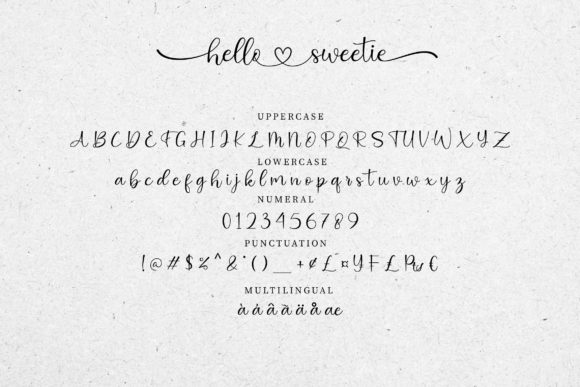 hello ♡ sweetie
UPPERCASE
A B C D E F G H I J K L M N O P Q R S T U V W X Y Z
LOWERCASE
a b c d e f g h i j k l m n o p q r s t u v w x y z
NUMERAL
0 1 2 3 4 5 6 7 8 9
PUNCTUATION
! @ # $ % ^ & * ( ) _ + ¢ £ ¤ ¥ ₣ ₤ ₧ €
MULTILINGUAL
à á â ã ä å æ